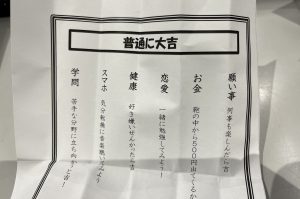 普通に大吉
願い事 何事も楽しんだら吉
お金 鞄の中から500円出てくるか
恋愛 一緒に勉強してみよう！
健康 好き嫌いせんかったら吉
スマホ 気分転換に音楽聴いてみよう
学問 苦手な分野に立ち向かうと吉！